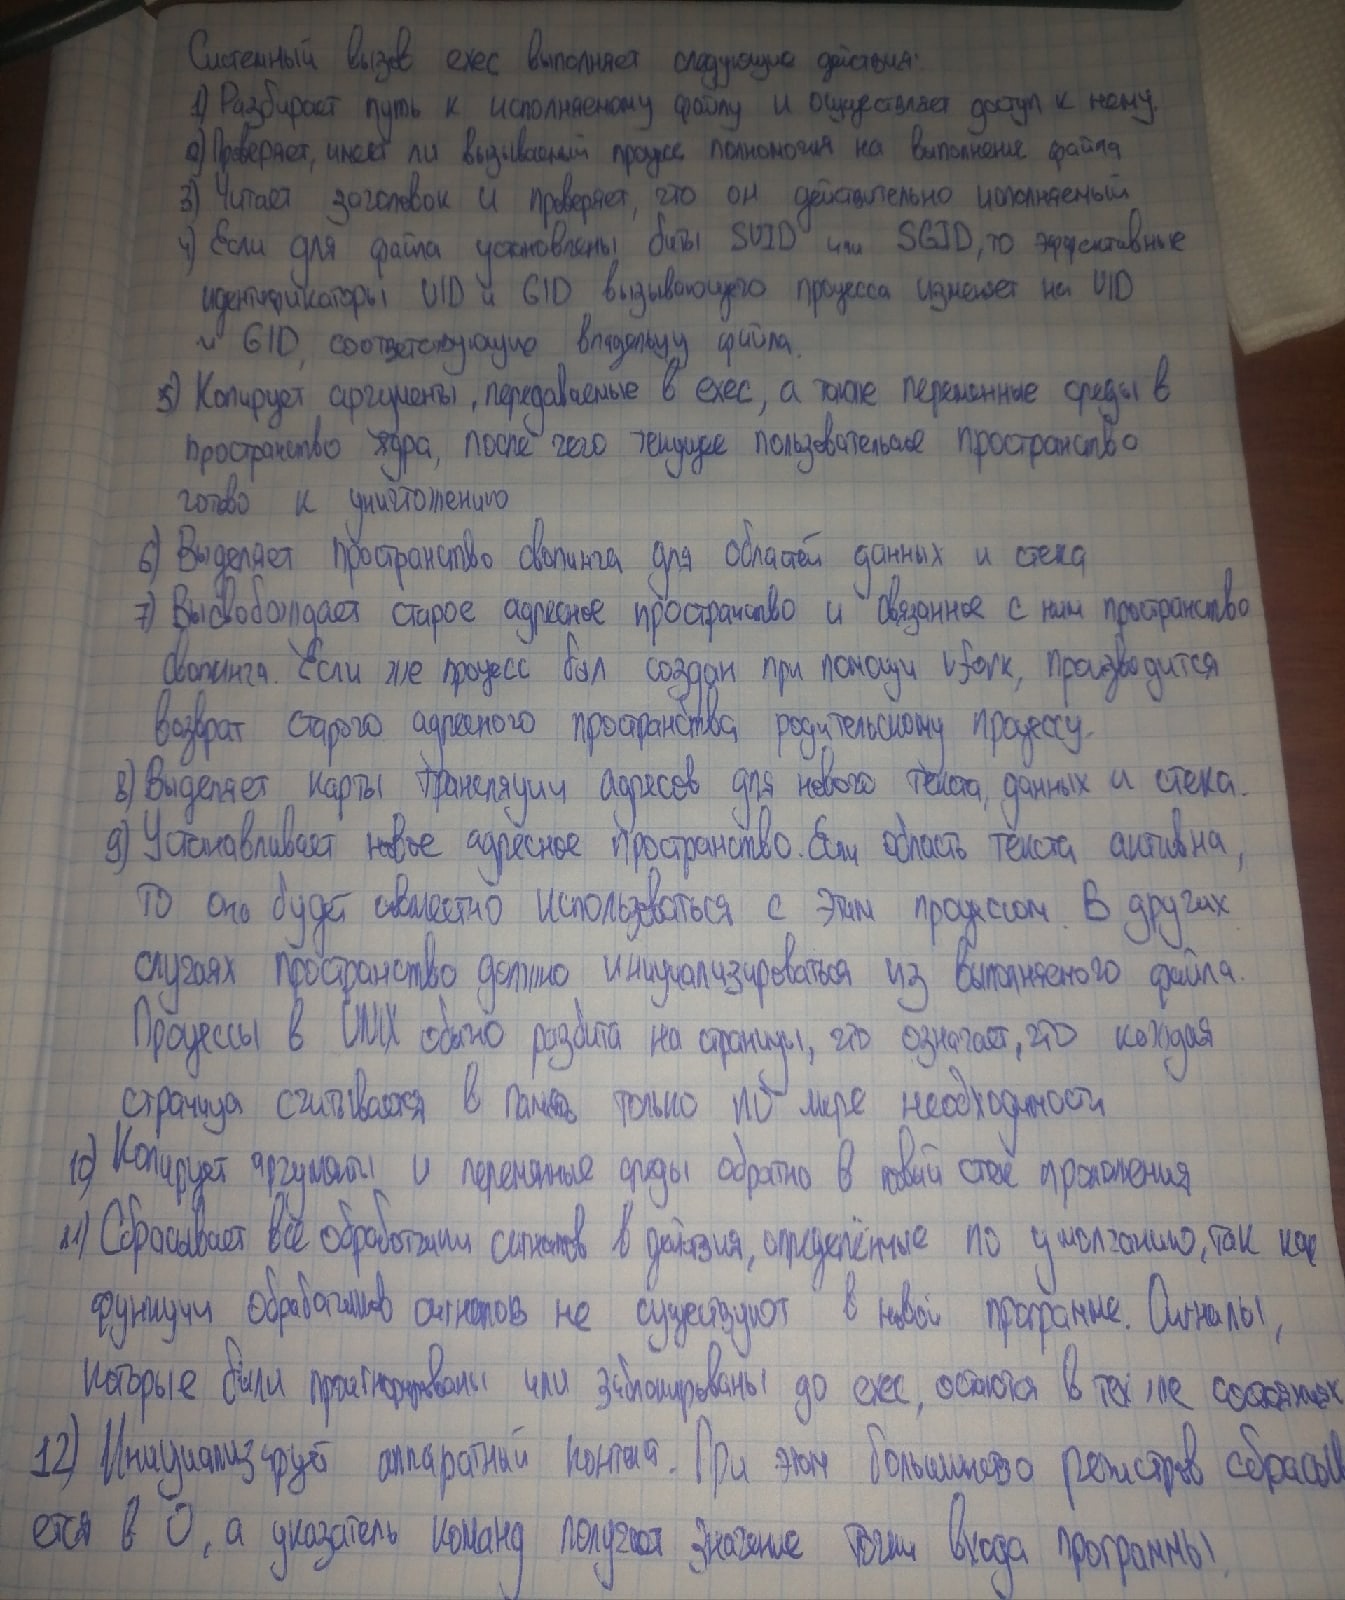 Системный вызов exec выполняет следующие действия:
1) Разбирает путь к исполняемому файлу и осуществляет доступ к нему.
2) Проверяет, имеет ли вызываемый процесс полномочия на выполнение файла
3) Читает заголовок и проверяет, что он действительно исполняемый
4) Если для файла установлены биты SUID или SGID, то эффективные
идентификаторы UID и GID вызывающего процесса изменяет на UID
и GID, соответствующие владельцу файла.
5) Копирует аргументы, передаваемые в exec, а также переменные среды в
пространство ядра, после чего текущее пользовательское пространство
готово к уничтожению
6) Выделяет пространство свопинга для областей данных и стека
7) Высвобождает старое адресное пространство и связанное с ним пространство
свопинга. Если же процесс был создан при помощи vfork, производится
возврат старого адресного пространства родительскому процессу.
8) Выделяет карты трансляции адресов для нового текста, данных и стека.
9) Устанавливает новое адресное пространство. Если область текста активна,
то она будет совместно использоваться с этим процессом. В других
случаях пространство должно инициализироваться из выполняемого файла.
Процессы в UNIX обычно разбита на страницы, что означает, что каждая
страница считывается в память только по мере необходимости
10) Копирует аргументы и переменные среды обратно в новый стек приложения
11) Сбрасывает все обработчики сигналов в действия, определённые по умолчанию, так как
функции обработчиков сигналов не существуют в новой программе. Сигналы,
которые были проигнорированы или заблокированы до exec, остаются в тех же состояниях
12) Инициализирует аппаратный контекст. При этом большинство регистров сбрасыва
ется в 0, а указатель команд получает значение точки входа программы.